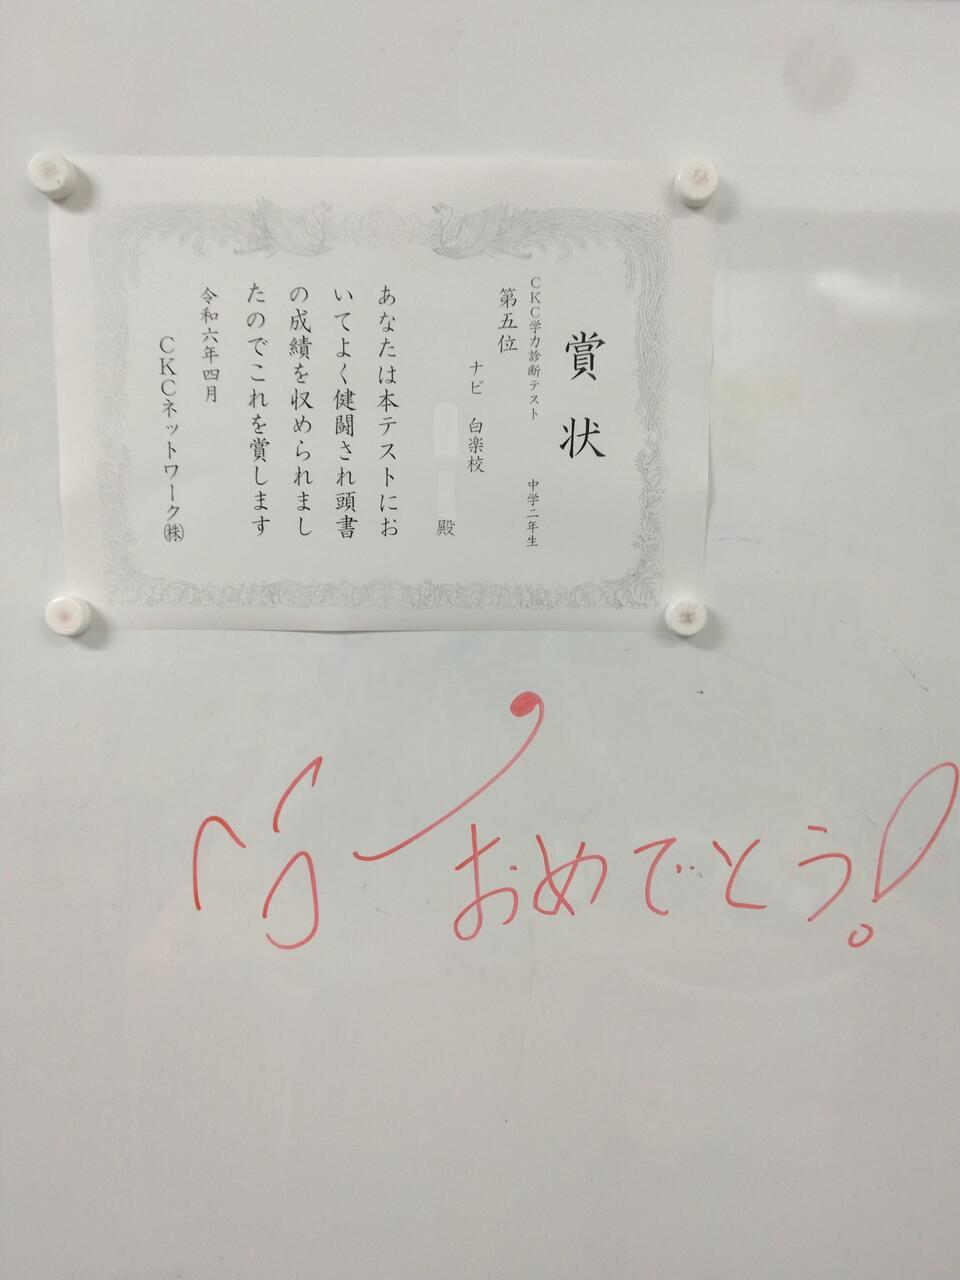 賞状
CKC学力診断テスト 中学二年生
第五位
ナビ 白楽校
殿
あなたは本テストにお
いてよく健闘され頭書
の成績を収められまし
たのでこれを賞します
令和六年四月
CKCネットワーク㈱
おめでとう!